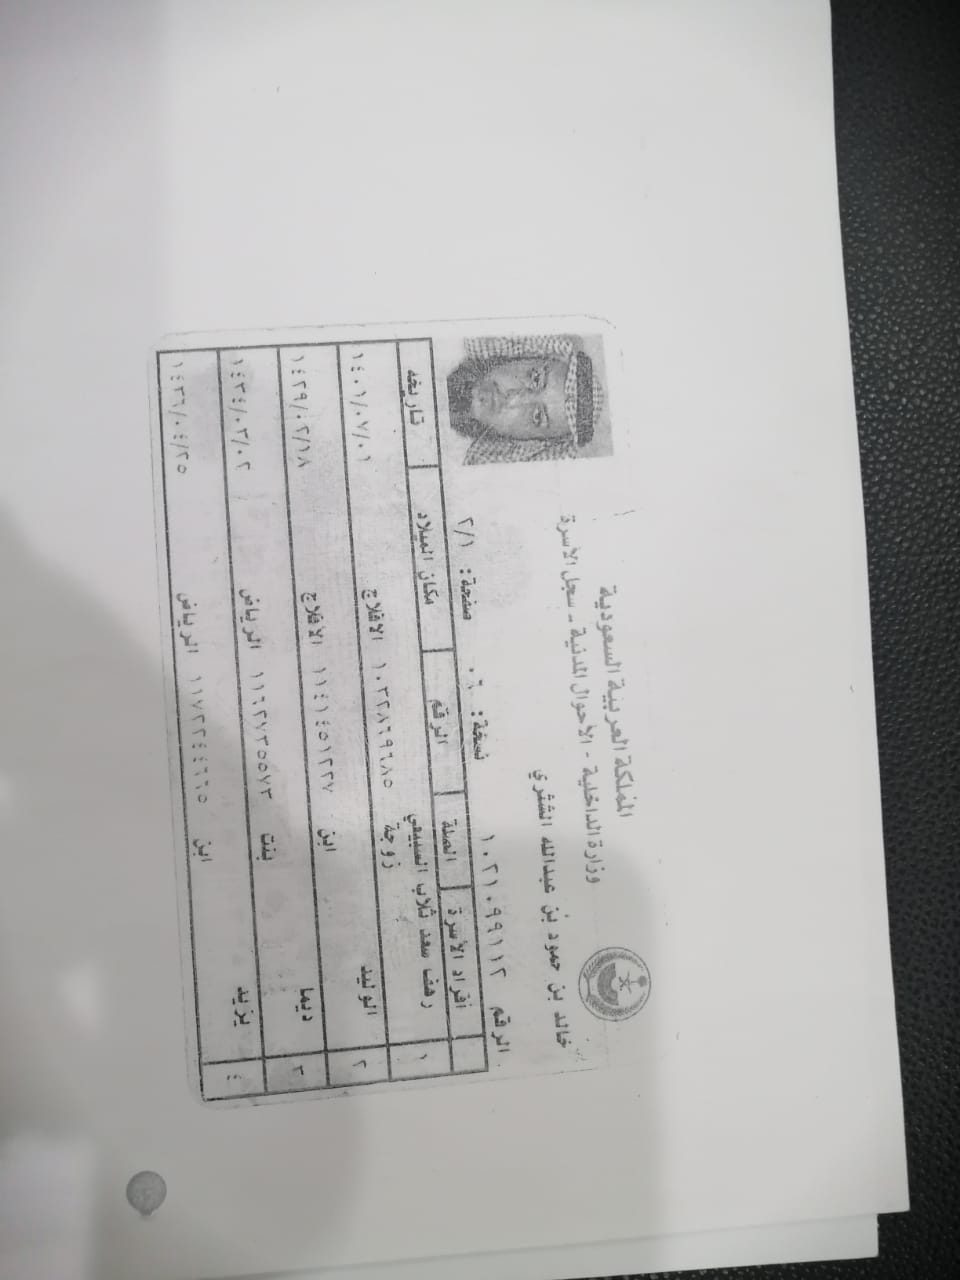 المملكة العربية السعودية
وزارة الداخلية - الأحوال المدنية - سجل الأسرة
خالد بن حمود بن عبدالله الشثري
الرقم ١٠٢١٠٩٩١١٢ نسخة: ٠٦ صفحة: ٢/١
أفراد الأسرة الصلة الرقم مكان الميلاد تاريخه
١ رهف سعد ثلاب السبيعي زوجة ١٠٣٢٨٦٩٦٨٥ الافلاج ١٤٠١/٠٧/٠١
٢ الوليد ابن ١١٤١٤٥١٢٢٧ الافلاج ١٤٢٩/٠٢/١٨
٣ ديما بنت ١١٦٢٧٣٥٥٧٣ الرياض ١٤٣٤/٠٣/٠٢
٤ يزيد ابن ١١٧٢٢٤٤٦٦٥ الرياض ١٤٣٦/٠٤/٢٥